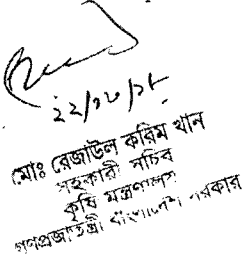 ২২/১০/১৮
মোঃ রেজাউল করিম খান
সহকারী সচিব
কৃষি মন্ত্রণালয়
গণপ্রজাতন্ত্রী বাংলাদেশ সরকার